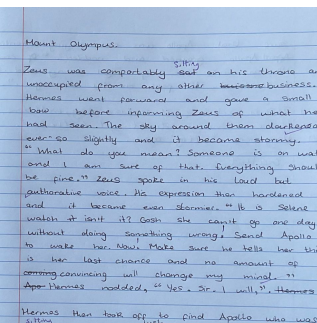 Mount Olympus.
Zeus was comfortably sitting on his throne
unoccupied from any other business.
Hermes went forward and gave a small
bow before informing Zeus of what he
had seen. The sky around them darkened
ever so slightly and it became stormy.
"What do you mean? Someone is on
and I am sure of that. Everything should
be fine." Zeus spoke in his loud but
authorative voice. His expression then hardened
and it became even stormier. "It is Selene
watch isn't it? Gosh she can't go one day
without doing something wrong. Send Apollo
to wake her. Now. Make sure he tells her
is her last chance and no amount of
convincing will change my mind."
Hermes nodded, "Yes. Sir. I will,". Hermes
Hermes then took off to find Apollo who was
sitting